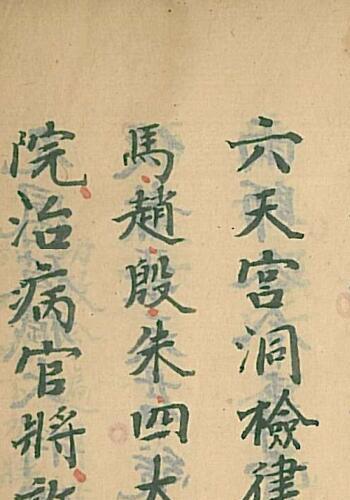 六天宮洞檢律
馬趙殷朱四大
院治病官將